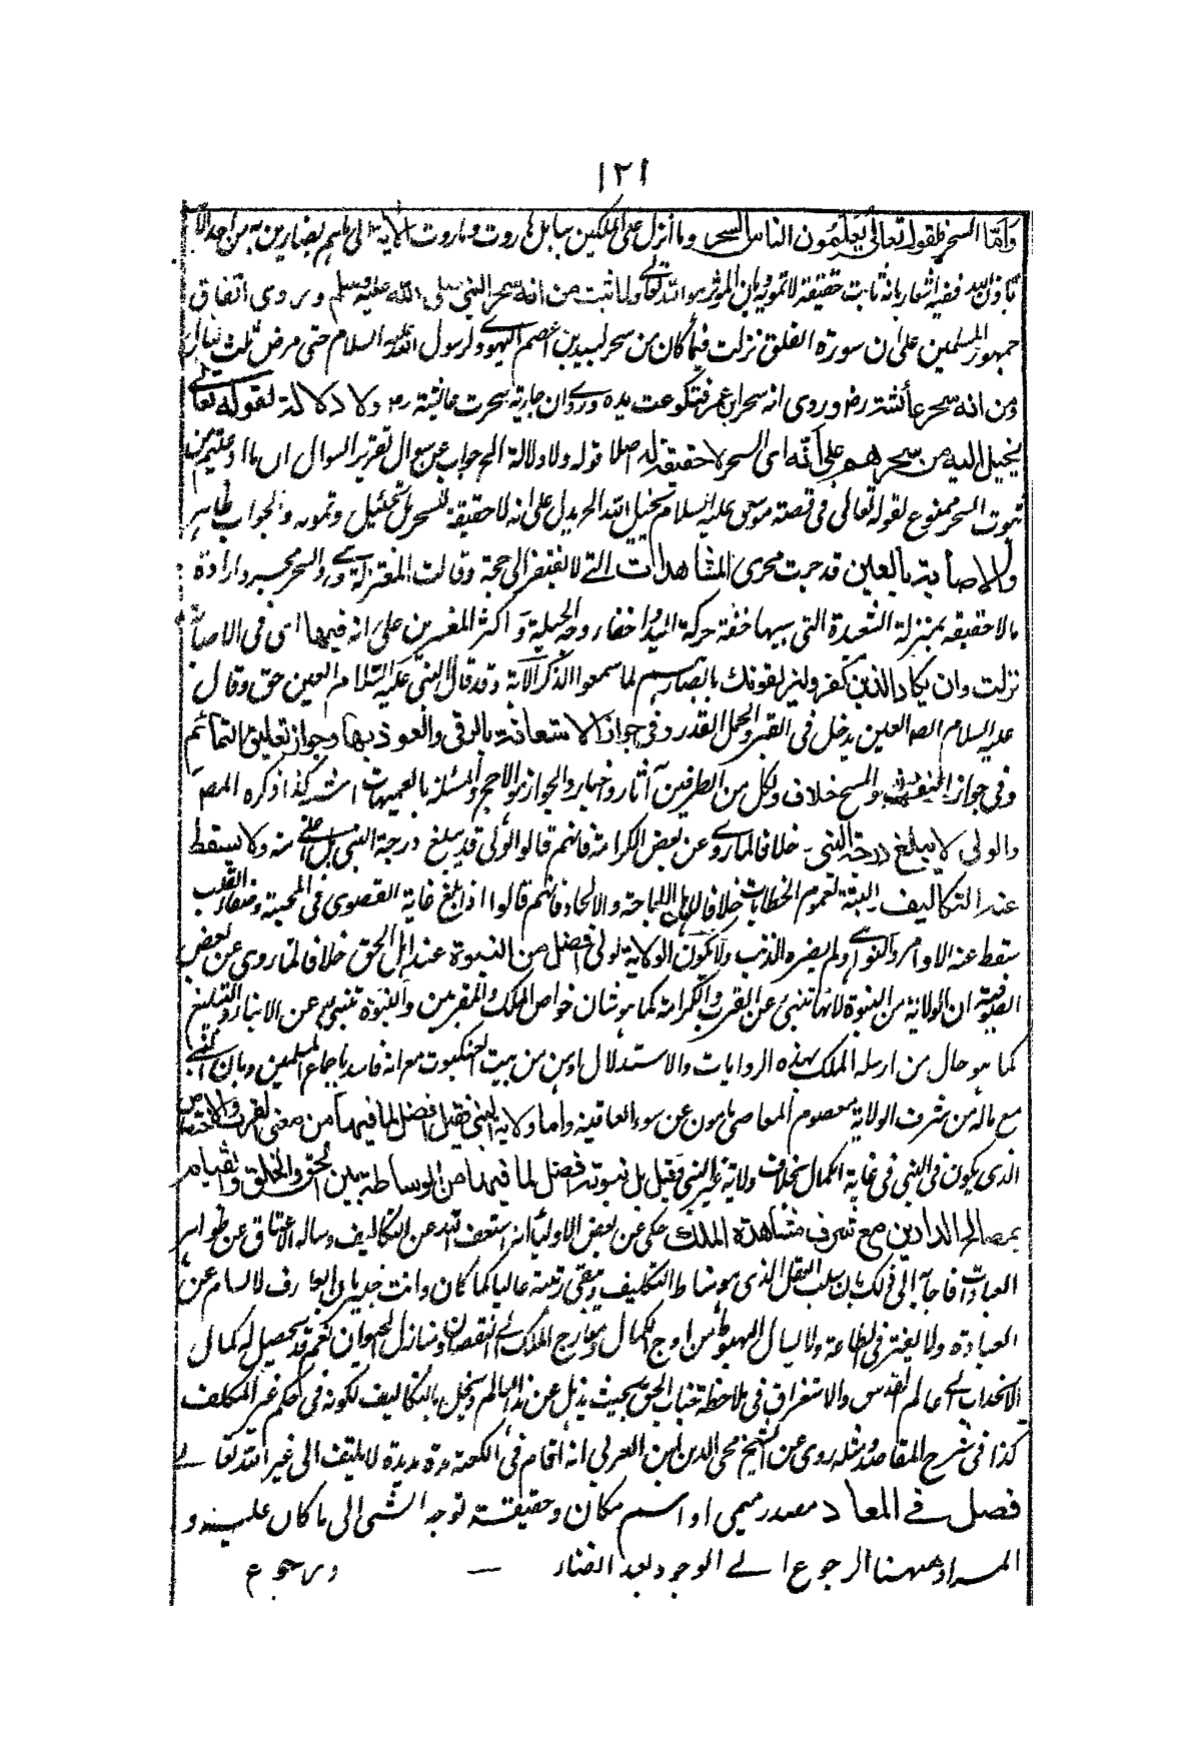 ١٢١
واما السحر فلقوله تعالى يعلمون الناس السحر وما انزل على الملكين ببابل هاروت وماروت الآية الى وما هم بضارين به من احد الا
باذن الله ففيه اشعار بانه ثابت حقيقة لا تمويه وان المؤثر هو الله تعالى ولما ثبت من انه سحر النبي صلى الله عليه وسلم وروى اتفاق
جمهور المسلمين على ان سورة الفلق نزلت فيما كان من سحر لبيد بن اعصم اليهودي لرسول الله عليه السلام حتى مرض ثلث ليال
ومن انه سحر عائشة رض وروى انه سحر ابن عمر فتكوعت يده وروى ان جارية سحرت عائشة رض ولا دلالة لقوله تعالى
يخيل اليه من سحرهم على انه اى السحر لا حقيقة له اصلا قوله ولا دلالة الخ جواب عن سوال تقرير السوال ان ما ادعيتم من
ثبوت السحر ممنوع لقوله تعالى فى قصة موسى عليه السلام يخيل اليه الخ يدل على انه لا حقيقة للسحر بل تخييل وتمويه والجواب ظاهر
والاصابة بالعين قد جرت مجرى المشاهدات التى لا تفتقر الى حجة وقالت المعتزلة السحر مجرد ارادة
ما لا حقيقة بمنزلة الشعبدة التى سببها خفة حركة اليد واخفاء وجه الحيلة واكثر المفسرين على انه فيها اى فى الاصابة
نزلت وان يكاد الذين كفروا ليزلقونك بابصارهم لما سمعوا الذكر الآية وقد قال النبي عليه السلام العين حق وقال
عليه السلام العين يدخل فى القبر والجمل القدر وفى جواز الاستعانة بالرقى والعوذ بها وجواز تعليق التمائم
وفى جواز النفث والمسح خلاف ولكل من الطرفين آثار واخبار والجواز هو الارجح والمسئلة بالفقهيات اشبه كذا ذكره المص
والولى لا يبلغ درجة النبى خلافا لما روى عن بعض الكرامية فانهم قالوا الولى قد يبلغ درجة النبى بل اعلى منه ولا يسقط
عنه التكاليف البتة لعموم الخطابات خلافا لاهل الاباحة والالحاد فانهم قالوا اذا بلغ غاية القصوى فى المحبة وصفاء القلب
سقط عنه الاوامر والنواهى ولم يضره الذنب ولا تكون الولاية لولى افضل من النبوة عند اهل الحق خلافا لما روى عن بعض
الصوفية ان الولاية من النبوة لانها تنبئ عن القرب والكرامة كما هو شان خواص الملك والمقربين والنبوة تنبئ عن الانباء والتبليغ
كما هو حال من ارسله الملك بهذه الروايات والاستدلال اوهن من بيت العنكبوت مع انه فاسد باجماع المسلمين وبان النبى
مع ماله من شرف الولاية معصوم المعاصى مامون عن سوء العاقبة واما ولاية النبى فقيل افضل لما فيها من معنى القرب والاختصاص
الذى يكون فى النبى فى غاية الكمال بخلاف ولاية غير النبى وقيل بل نبوته افضل لما فيها من الوساطة بين الحق والخلق والقيام
بمصالح الدارين مع شرف مشاهدة الملك حكى عن بعض الاولياء انه استعفى الله عن التكاليف وساله الاعتاق عن ظواهر
العبادات فاجابه الى ذلك بان سلب العقل الذى هو مناط التكليف وبقى رتبته عاليا كما كان وانت خبير بان العارف لا يسام عن
العبادة ولا يفتر فى الطاعة ولا يسال الهبوط من اوج الكمال ومعارج الملك الى النقصان ومنازل الحيوان نعم قد يحصل له كمال
الانجذاب الى عالم القدس والاستغراق فى ملاحظة جناب الحق بحيث يذهل عن هذا العالم ويخل بالتكاليف لكونه فى حكم غير المكلف
كذا فى شرح المقاصد ومثله روى عن الشيخ محى الدين ابن العربى انه اقام فى الكعبة مدة مديدة لا يلتفت الى غير الله تعالى
فصل فى المعاد مصدر ميمى او اسم مكان وحقيقته توجه الشئ الى ما كان عليه و
المراد ههنا الرجوع الى الوجود بعد الفناء ورجوع